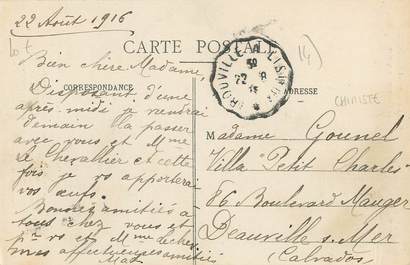 22 Août 1916
CARTE POSTALE
Bien chère Madame,
CORRESPONDANCE
ADRESSE
Disposant d'une
après-midi je viendrai
demain la passer
avec vous et Mme
Le Chevallier et cette
fois je vs apporterai
vos œufs.
Bonnes amitiés à
tous chez vous et
pr vs et Mme
mes affectueuses amitiés
TROUVILLE A LISIEUX
22 8
Madame Gounel
Villa "Petit Charles"
86 Boulevard Mauger
Deauville s. Mer
(Calvados)